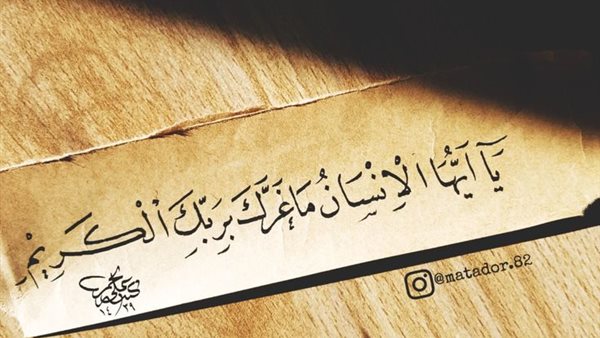 يَآ اَيُّهَا الْاِنْسَانُ مَا غَرَّكَ بِرَبِّكَ الْكَرِيْمِ
١٤/٢٩
@matador.82